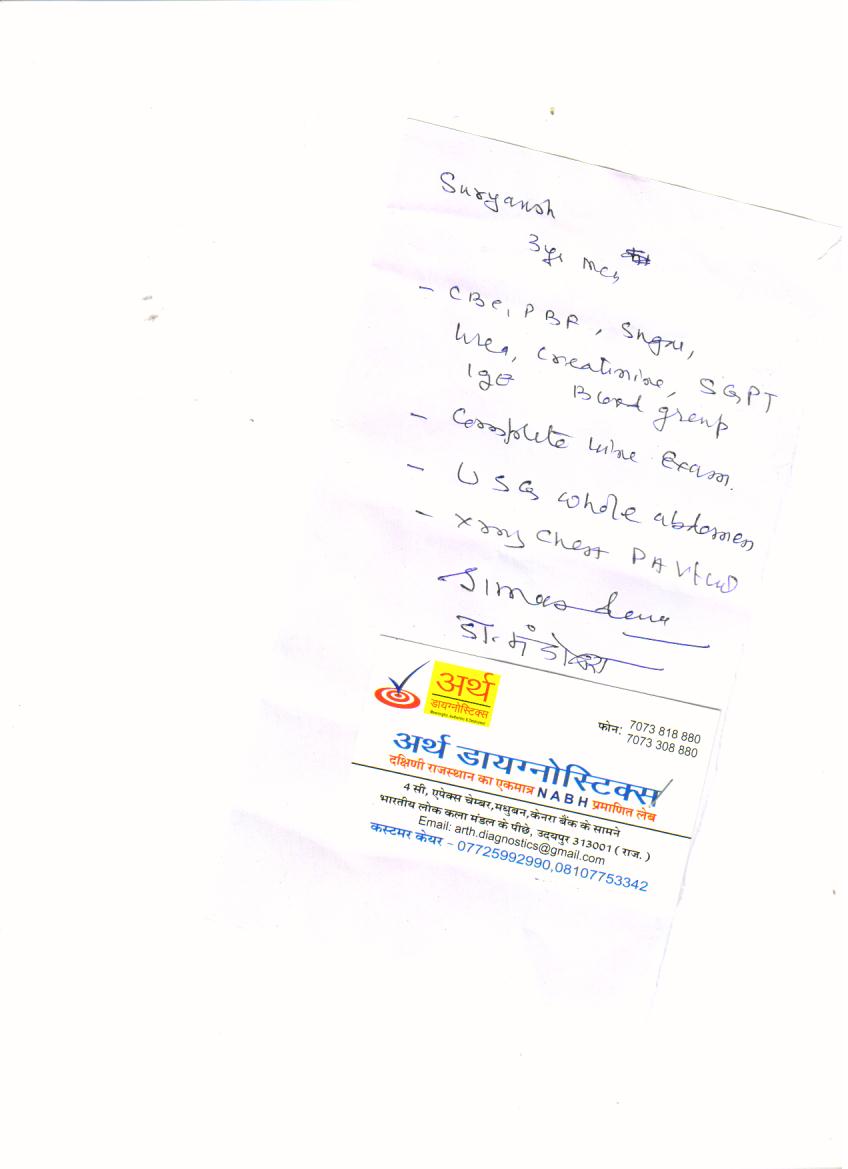 Suryansh
3yr mch
- CBC, PBF, Sugar,
Urea, Creatinine, SGPT
IgE Blood group
- Complete urine Exam.
- USG whole abdomen
- Xray Chest PA View
डा.
अर्थ
डायग्नोस्टिक्स
फोन: 7073 818 880
7073 308 880
अर्थ डायग्नोस्टिक्स
दक्षिणी राजस्थान का एकमात्र NABH प्रमाणित लेब
4 सी, एपेक्स चेम्बर,मधुबन,केनरा बैंक के सामने
भारतीय लोक कला मंडल के पीछे, उदयपुर 313001 ( राज. )
Email: arth.diagnostics@gmail.com
कस्टमर केयर - 07725992990,08107753342